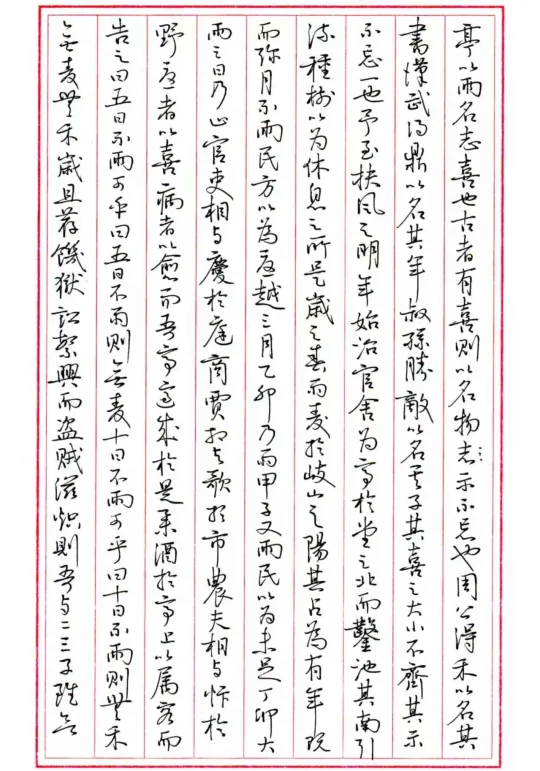 亭以雨名志喜也古者有喜則以名物志示不忘也周公得禾以名其
書漢武得鼎以名其年叔孫勝敵以名其子其喜之大小不齊其示
不忘一也予至扶風之明年始治官舍為亭於堂之北而鑿池其南引
流種樹以為休息之所是歲之春雨麦於岐山之陽其占為有年既
而弥月不雨民方以為憂越三月乙卯乃雨甲子又雨民以為未足丁卯大
雨三日乃止官吏相与慶於庭商賈相与歌於市農夫相与忭於
野憂者以喜病者以愈而吾亭適成於是舉酒於亭上以属客而
告之曰五日不雨可乎曰五日不雨則無麦十日不雨可乎曰十日不雨則無禾
無麦無禾歲且荐饑獄訟繁興而盗賊滋熾則吾与二三子雖欲